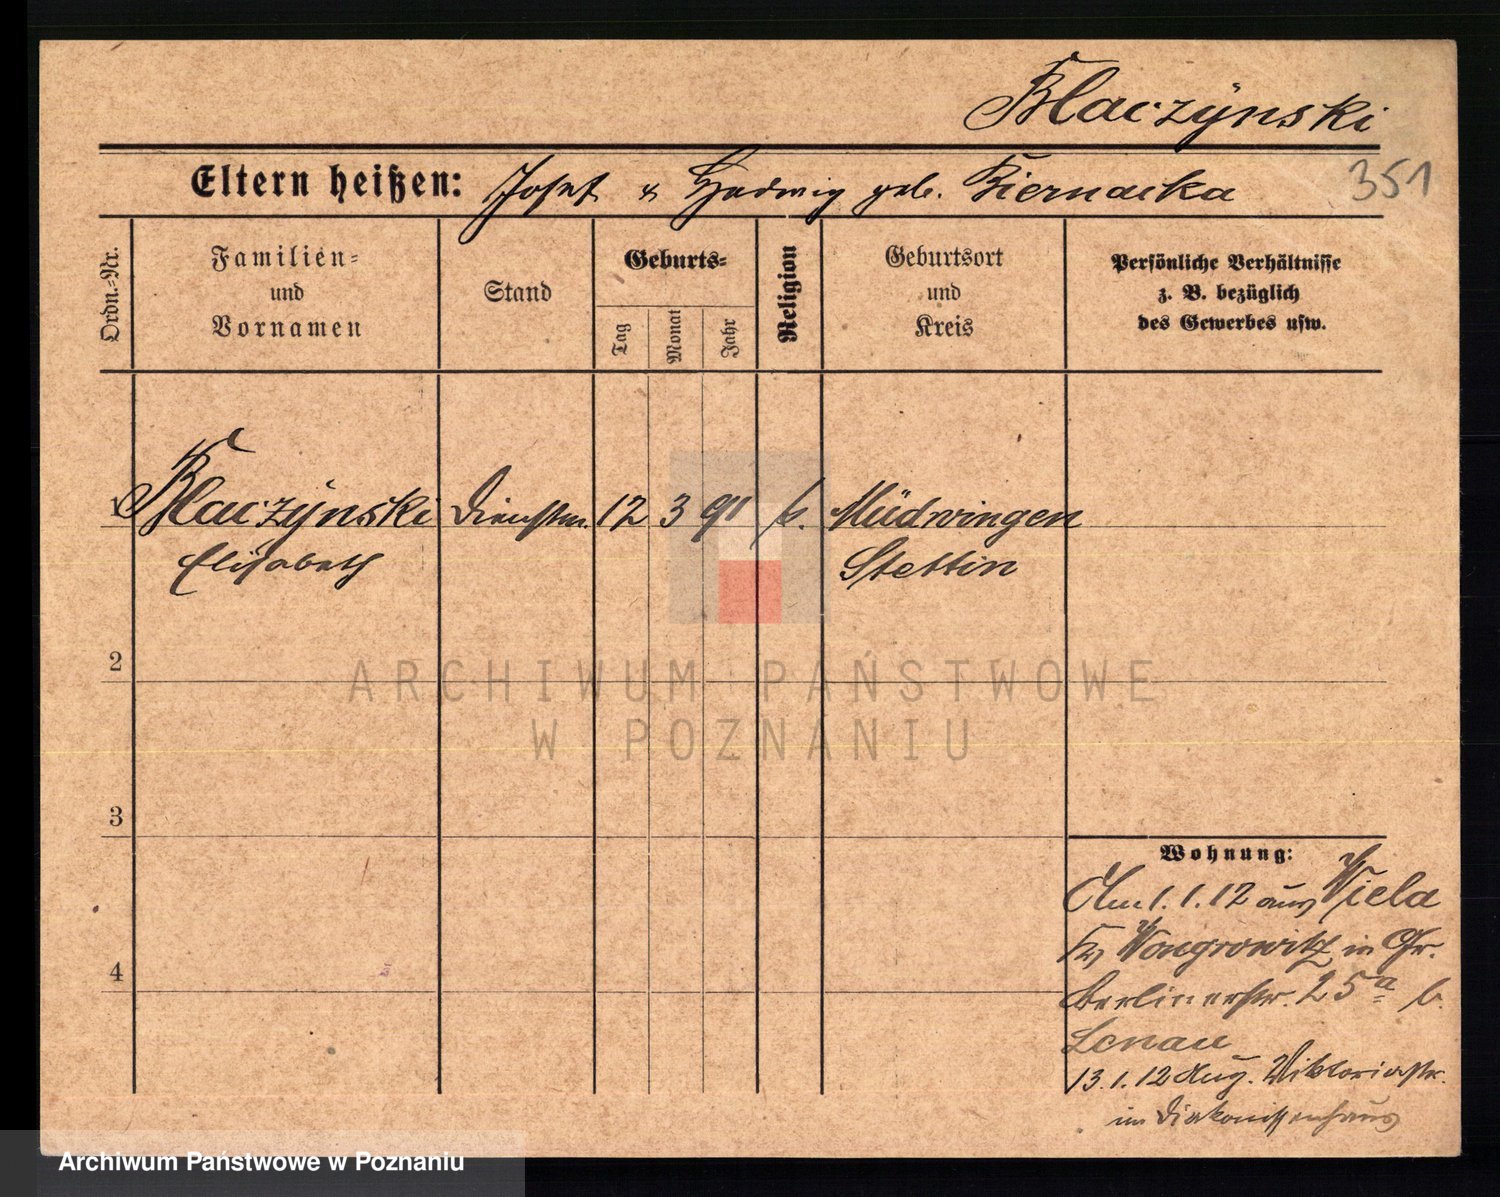 Blaczÿnski
Eltern heißen: Josef & Hedwig geb. Biernacka
351
Ordn.-Nr.
Familien-
und
Vornamen
Stand
Geburts-
Tag
Monat
Jahr
Religion
Geburtsort
und
Kreis
Persönliche Verhältnisse
z. B. bezüglich
des Gewerbes usw.
1 Blaczÿnski Dienstm. 12 3 91 k. Müdwingen
Elisabeth Stettin
2
3
4
ARCHIWUM PAŃSTWOWE
W POZNANIU
Wohnung:
Am 1.1.12 aus Wiela
Kr. Wongrowitz in Gr.
Berlinerstr. 25a b.
Lenau
13.1.12 Aug. Viktoriastr.
im Diakonissenhaus
Archiwum Państwowe w Poznaniu